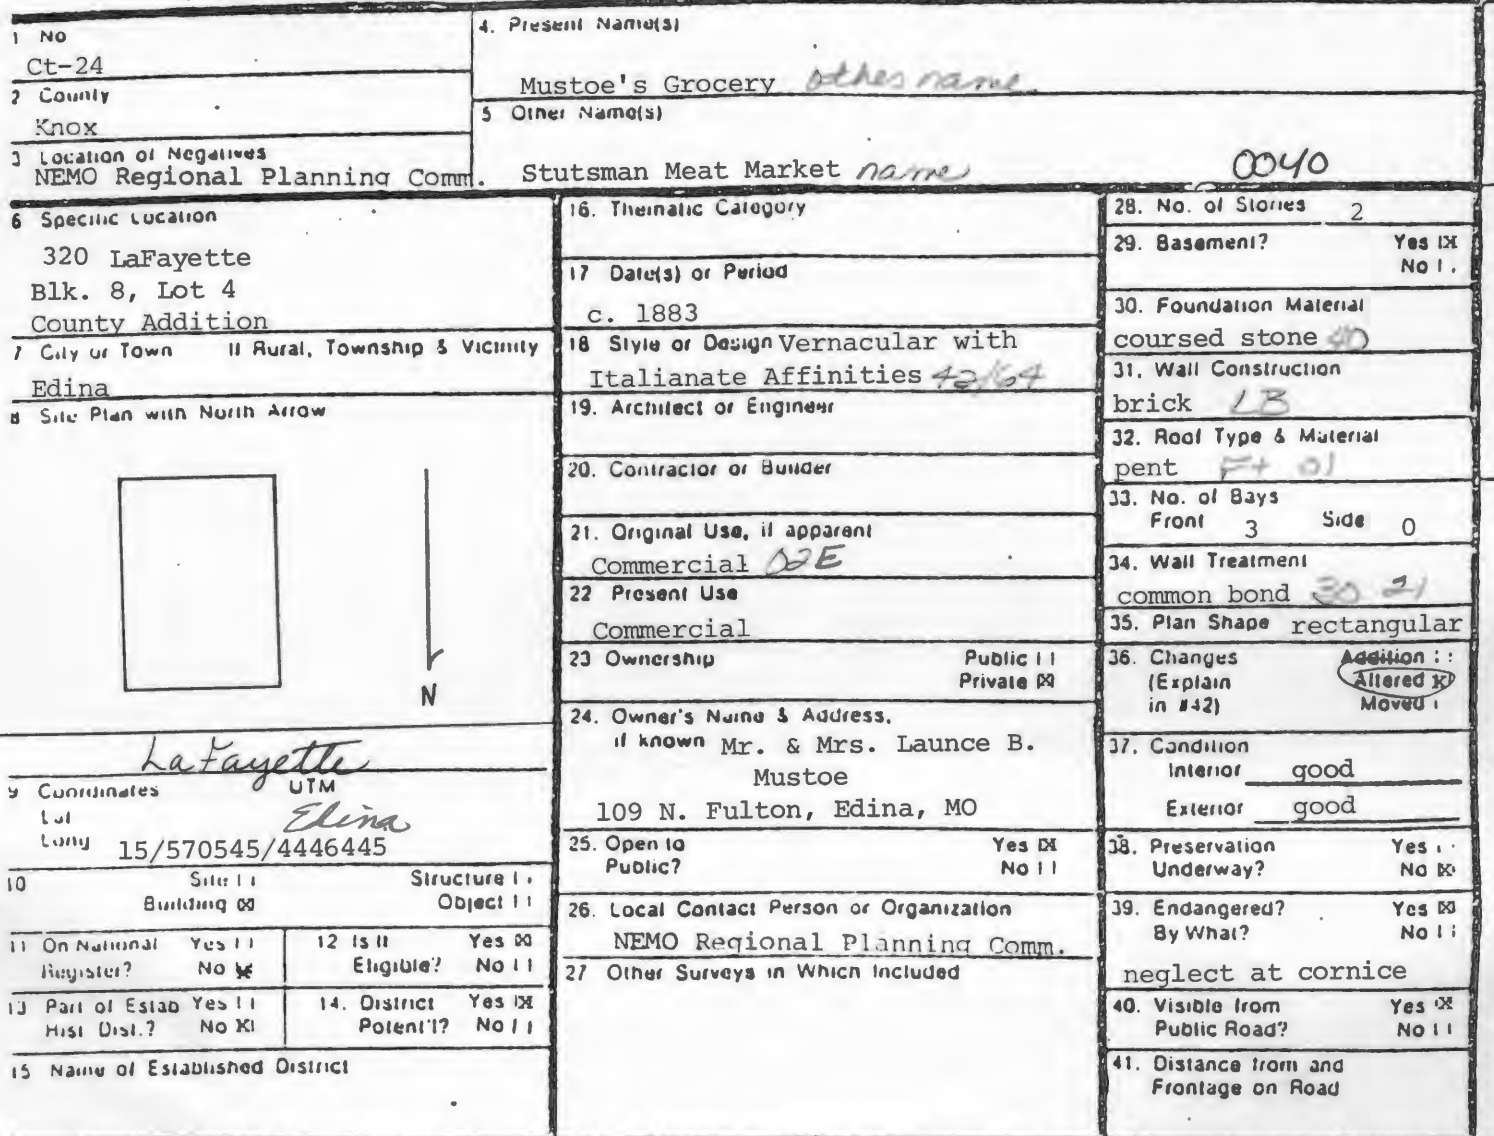 1 No
Ct-24
2 County
Knox
3 Location of Negatives
NEMO Regional Planning Comm.
4. Present Name(s)
Mustoe's Grocery other name
5 Other Name(s)
Stutsman Meat Market name
0040
6 Specific Location
320 LaFayette
Blk. 8, Lot 4
County Addition
7 City or Town If Rural, Township & Vicinity
Edina
8 Site Plan with North Arrow
N
LaFayette
9 Coordinates UTM
Lat
Long
Edina
15/570545/4446445
10 Site Structure
Building Object
11 On National Yes
Register? No
12 Is It Yes
Eligible? No
13 Part of Estab Yes
Hist Dist.? No
14. District Yes
Potent'l? No
15 Name of Established District
16. Thematic Category
17 Date(s) or Period
c. 1883
18 Style or Design Vernacular with
Italianate Affinities 42/64
19. Architect or Engineer
20. Contractor or Builder
21. Original Use, if apparent
Commercial 02E
22 Present Use
Commercial
23 Ownership Public
Private
24. Owner's Name & Address,
if known Mr. & Mrs. Launce B.
Mustoe
109 N. Fulton, Edina, MO
25. Open to Yes
Public? No
26. Local Contact Person or Organization
NEMO Regional Planning Comm.
27 Other Surveys in Which Included
28. No. of Stories 2
29. Basement? Yes
No
30. Foundation Material
coursed stone 40
31. Wall Construction
brick LB
32. Roof Type & Material
pent 01
33. No. of Bays
Front 3 Side 0
34. Wall Treatment
common bond 30 21
35. Plan Shape rectangular
36. Changes Addition
(Explain Altered
in #42) Moved
37. Condition
Interior good
Exterior good
38. Preservation Yes
Underway? No
39. Endangered? Yes
By What? No
neglect at cornice
40. Visible from Yes
Public Road? No
41. Distance from and
Frontage on Road